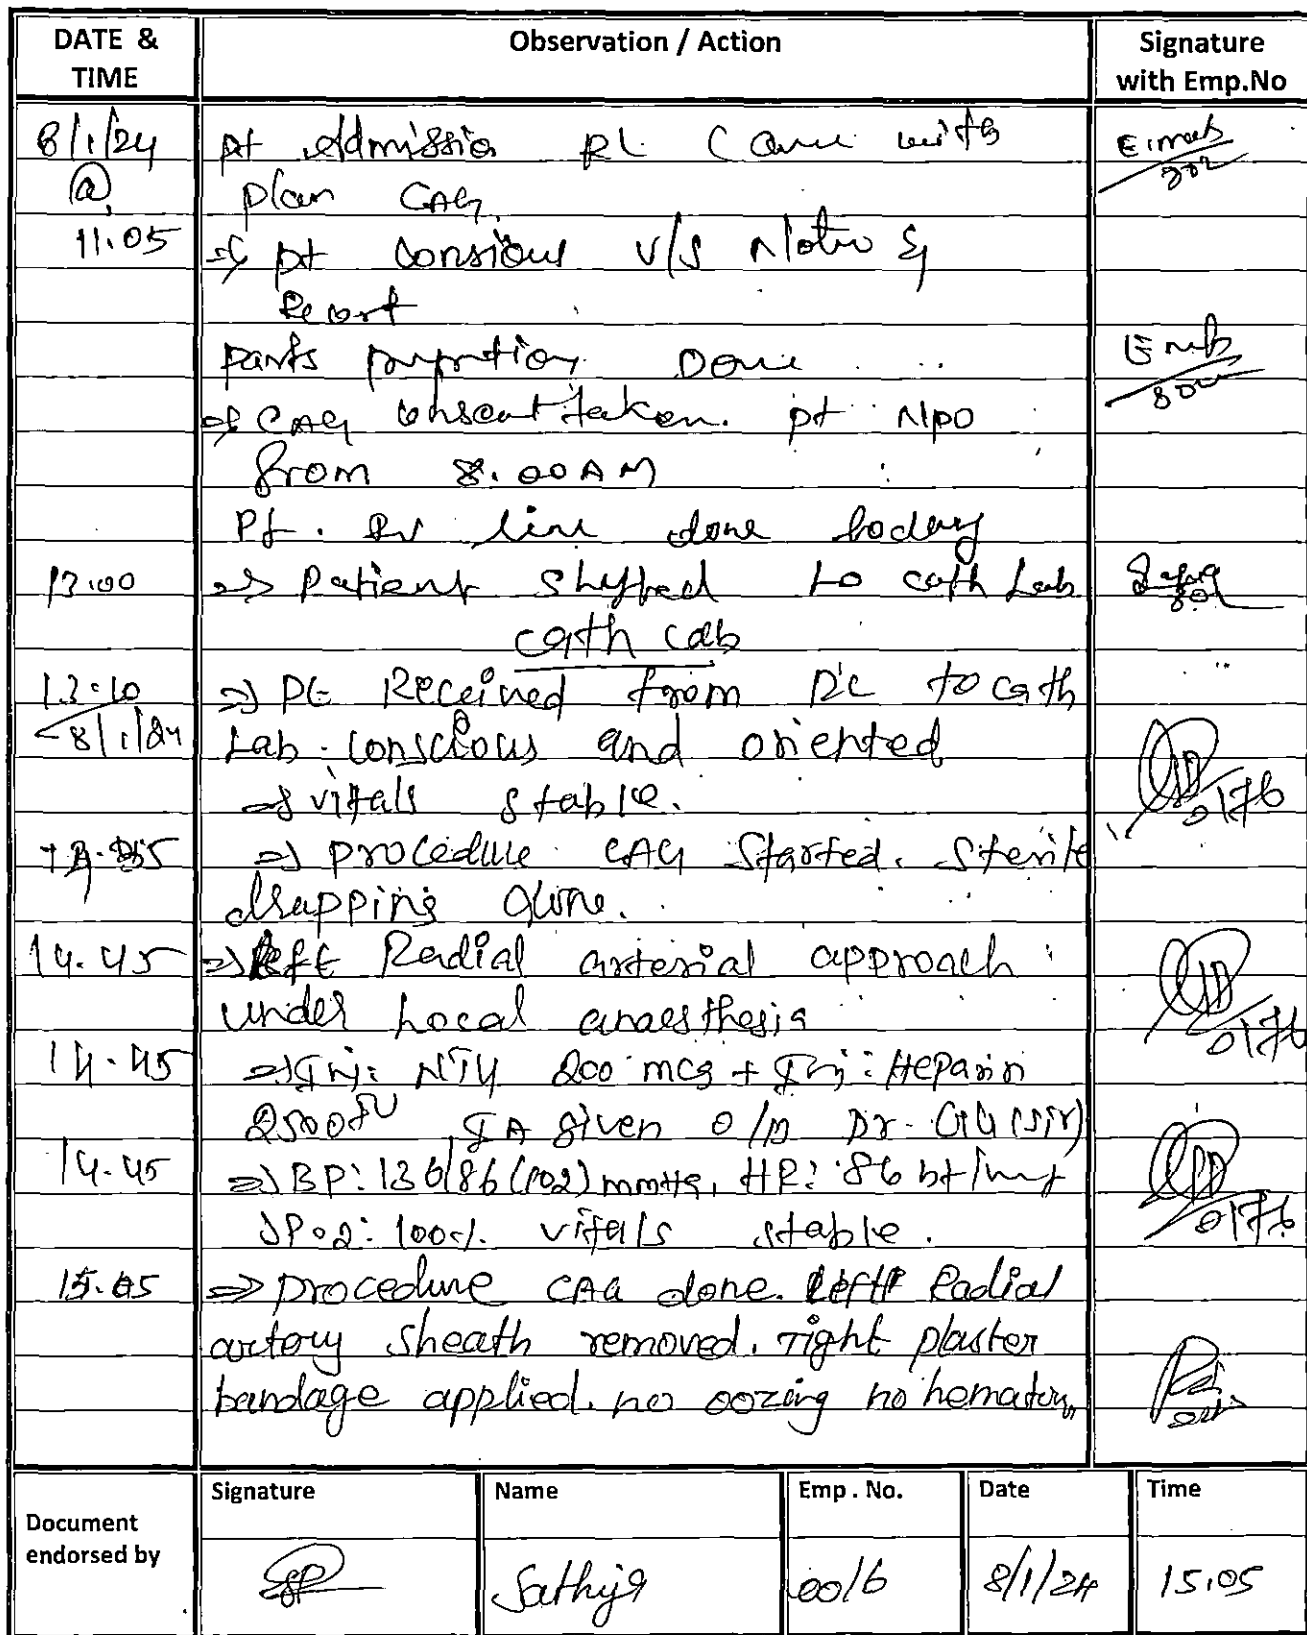 DATE & TIME Observation / Action Signature with Emp.No
8/1/24 pt Admission RL Came with
@ plan CAG.
11.05 => pt consious v/s Notio &
Recort
parts prepration Done
=> CAG consent taken. pt NPO
from 8.00AM
Pt. IV line done today
13.00 => Patient shifted to cath Lab
cath Lab
13:10 => Pt Received from RL to cath
8/1/24 Lab. conscious and oriented
=> vitals stable. 0176
=> procedure CAG started. Sterile
drapping done.
14.45 => left Radial arterial approach
under Local anaesthesia 0176
14.45 => Inj: NTG 200 mcg + Inj: Heparin
2500IU IA given o/b Dr. (sir)
14.45 => BP: 136/86 (102) mmHg, HR: 86 bt/mt
SPo2: 100% vitals stable. 0176
15.05 => procedure CAG done. Left Radial
artery sheath removed. Tight plaster
bandage applied. no oozing no hematom
Document endorsed by Signature Name Emp . No. Date Time
Sathiya 0016 8/1/24 15.05